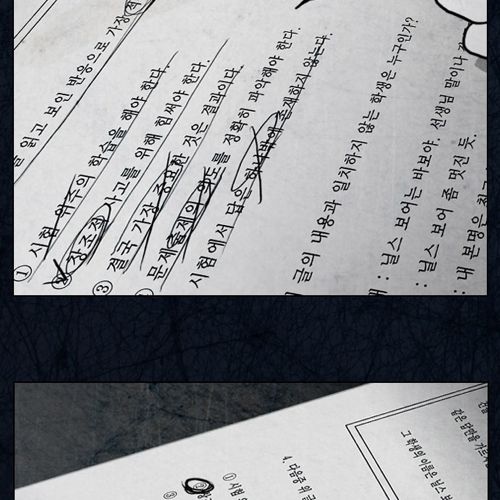 읽고 보인 반응으로 가장
① 시험 위주의 학습을 해야 한다.
창조적 사고를 위해 힘써야 한다.
③ 결국 가장 중요한 것은 결과이다.
문제 출제의 의도를 정확히 파악해야 한다.
시험에서 답은 하나밖에 존재하지 않는다.
글의 내용과 일치하지 않는 학생은 누구인가?
: 닐스 보어는 바보야. 선생님 말이나
: 닐스 보어 좀 멋진 듯.
: 내 본명은
4. 다음중 위
① 시험
그 학생의 이름은 닐스
같은 답만을